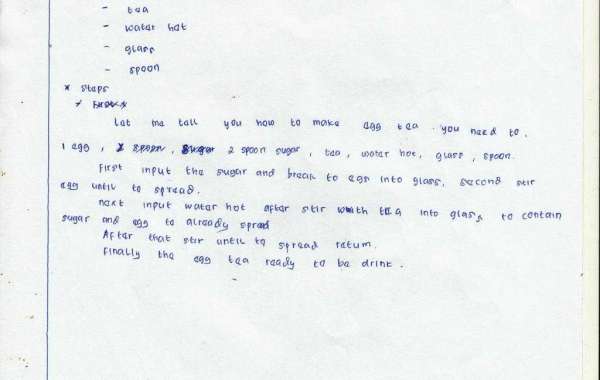 - tea
- water hot
- glass
- spoon
* Steps
Let me tell you how to make egg tea. you need to.
1 egg, 2 spoon sugar, tea, water hot, glass, spoon.
First input the sugar and break to egs into glass, second stir
egg until to spread.
next input water hot after stir with tea into glass, to contain
sugar and egg to already spread
After that stir until to spread return.
Finally the egg tea ready to be drink.